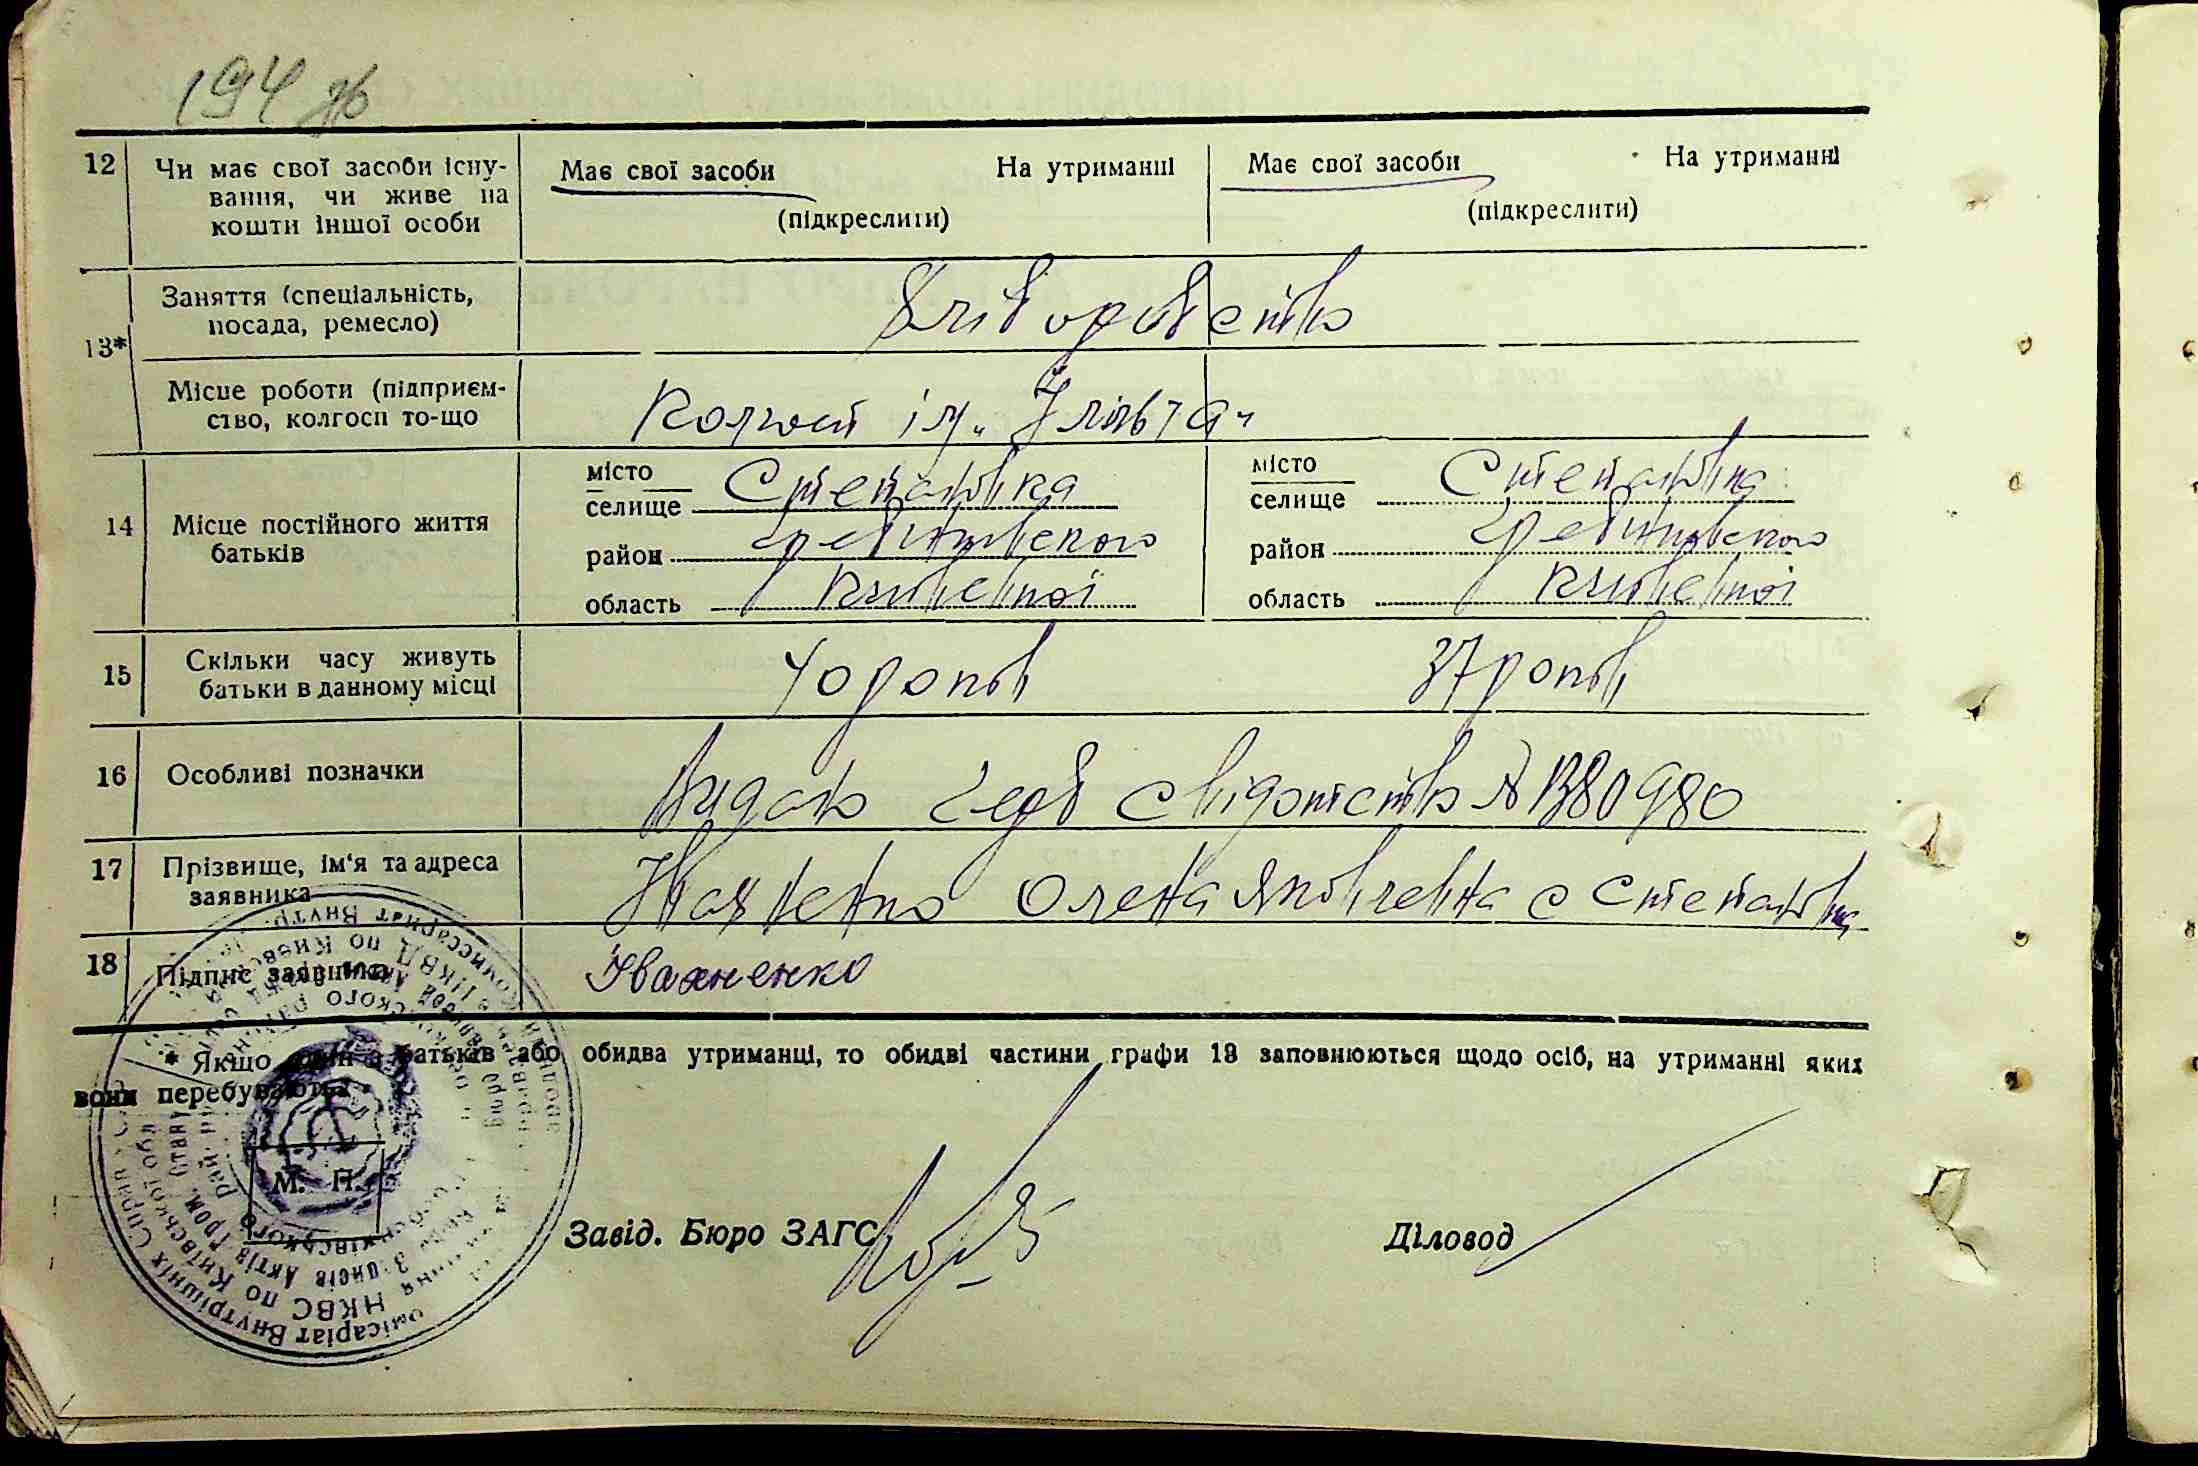 194 зв
12 Чи має свої засоби існу-
вання, чи живе на
кошти іншої особи
Має свої засоби На утриманні
(підкреслити)
Має свої засоби На утриманні
(підкреслити)
13*
Заняття (спеціальність,
посада, ремесло)
Хліборобство
Місце роботи (підприєм-
ство, колгосп то-що
Колгосп ім.
14 Місце постійного життя
батьків
місто
селище Степанівка
район
область Київської
місто
селище Степанівка
район
область Київської
15 Скільки часу живуть
батьки в данному місці
40 років 37 років
16 Особливі позначки
Видано свідоцтво № 1380980
17 Прізвище, ім'я та адреса
заявника
Івахненко Олена Яковлевна с Степанівка
18 Підпис заявника
Івахненко
* Якщо один з батьків або обидва утриманці, то обидві частини графи 13 заповнюються щодо осіб, на утриманні яких
вони перебувають.
М. П.
Завід. Бюро ЗАГС
Діловод